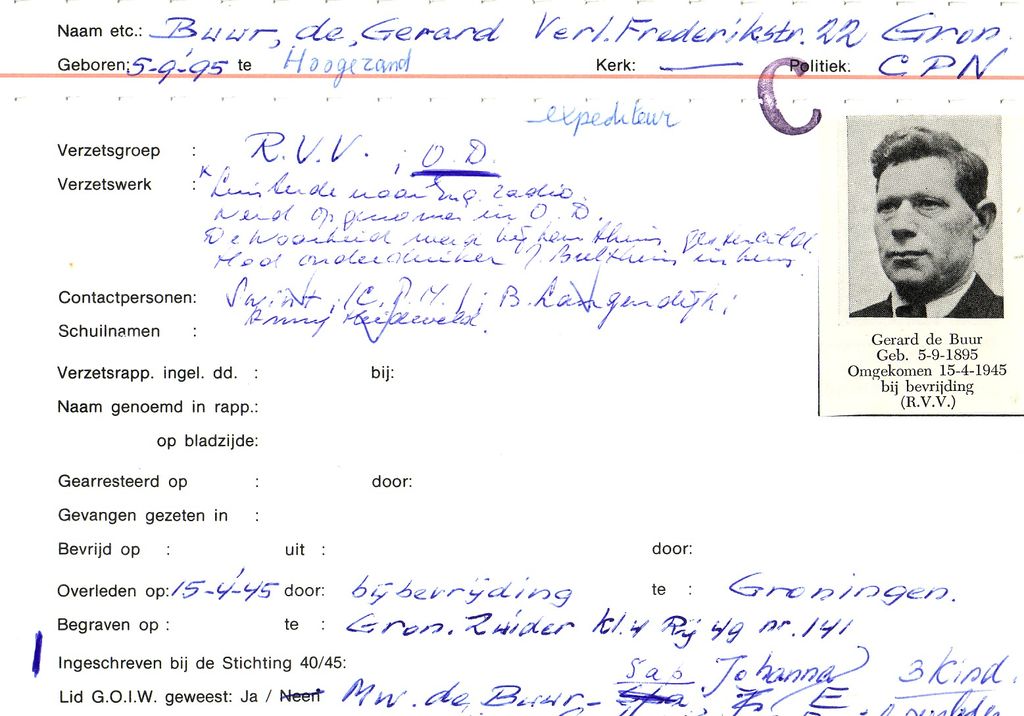 Naam etc.: Buur, de, Gerard Verl. Frederikstr. 22 Gron.
Geboren: 5-9-'95 te Hoogezand Kerk: — Politiek: CPN
C
expediteur
Verzetsgroep : R.V.V. ; O.D.
Verzetswerk : Luisterde naar Eng. radio.
Werd opgenomen in O.D.
De Waarheid werd bij hem thuis gestencild
Had onderduiker in huis.
Contactpersonen: (C.P.N.); B. Langendijk;
Anny
Schuilnamen :
Verzetsrapp. ingel. dd. : bij:
Naam genoemd in rapp.:
op bladzijde:
Gearresteerd op : door:
Gevangen gezeten in :
Bevrijd op : uit : door:
Overleden op: 15-4-'45 door: bij bevrijding te : Groningen.
Begraven op : te : Gron. Zuider kl. 4 Rij 49 nr. 141
Ingeschreven bij de Stichting 40/45:
Johanna 3 Kind.
Lid G.O.I.W. geweest: Ja / Neen Mw. de Buur-
Gerard de Buur
Geb. 5-9-1895
Omgekomen 15-4-1945
bij bevrijding
(R.V.V.)